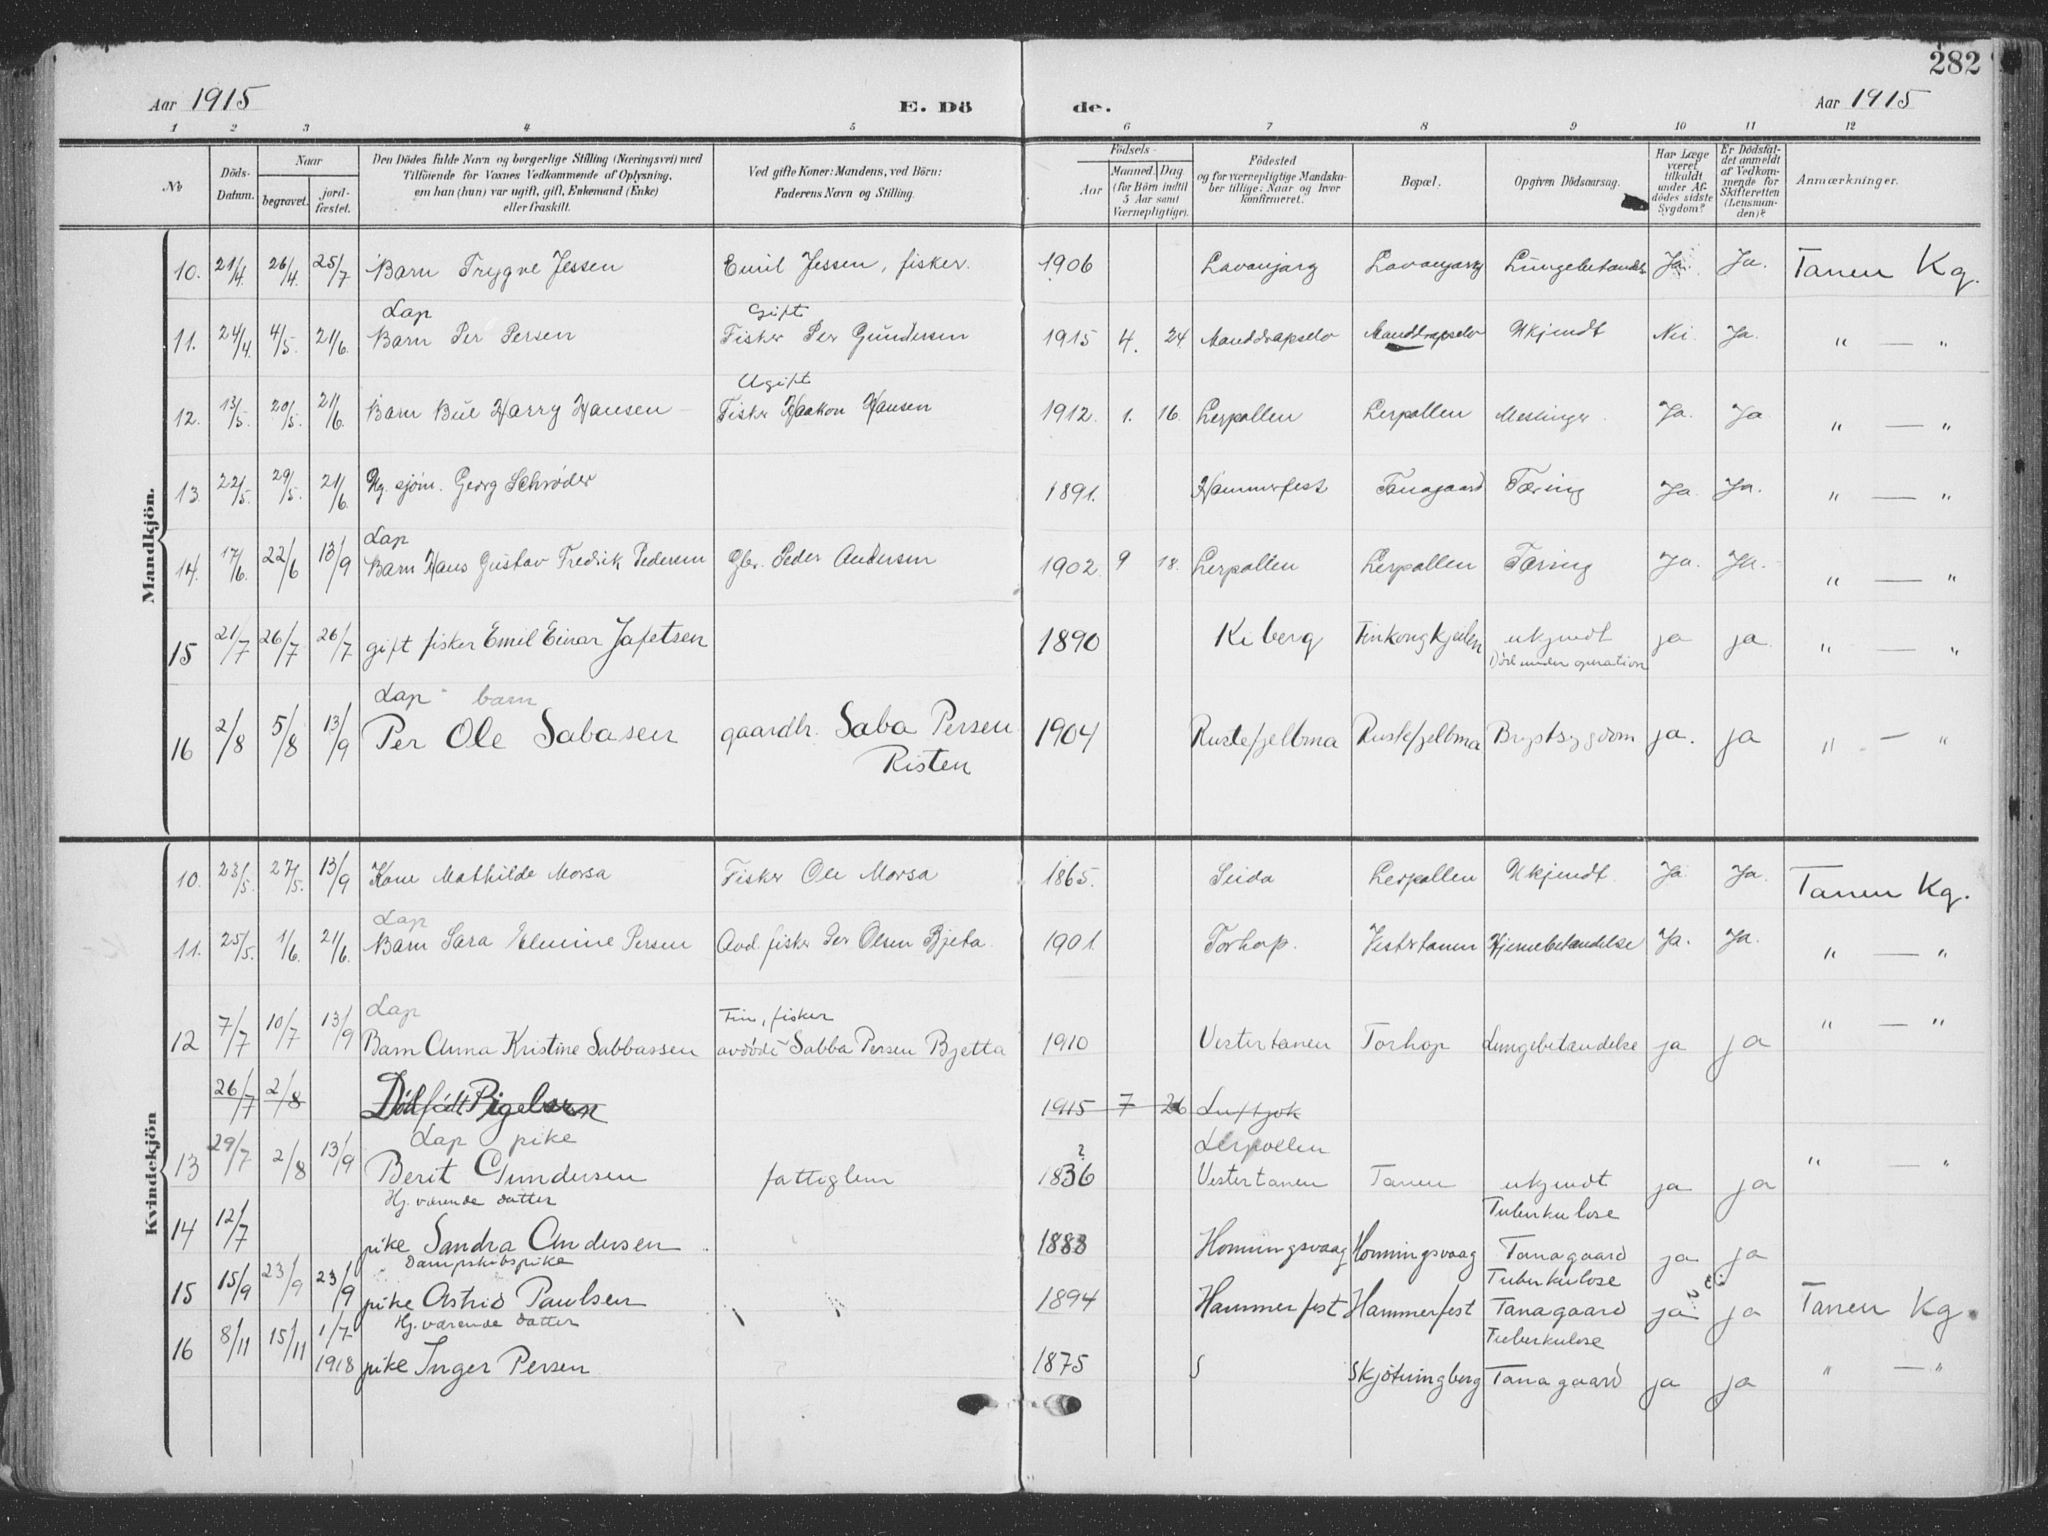 282
Aar 1915 E. Dö de. Aar 1915
1 2 3 4 5 6 7 8 9 10 11 12
No Döds-Datum. Naar begravet. jordfæstet. Den Dödes fulde Navn og borgerlige Stilling (Næringsvei) med Tilföiende for Voxnes Vedkommende af Oplysning, om han (hun) var ugift, gift, Enkemand (Enke) eller fraskilt. Ved gifte Koner: Mandens, ved Börn: Faderens Navn og Stilling. Födsels- Aar Maaned. Dag (for Börn indtil 5 Aar samt Værnepligtige). Födested og for værnepligtige Mandskaber tillige: Naar og hvor konfirmeret. Bopæl. Opgiven Dödsaarsag. Har Læge været tilkaldt under Afdödes sidste Sygdom? Er Dödsfaldet anmeldt af Vedkommende for Skifteretten (Lensmanden)? Anmærkninger.
Mandkjön.
10. 21/4 26/4 25/7 Barn Trygve Jessen Emil Jessen, fisker. 1906 Lavonjarg Lavonjarg Lungebetændelse Ja. Ja. Tanen Kg.
Lap Gift
11. 24/4. 4/5. 21/6. Barn Per Persen Fisker Per Gundersen 1915 4. 24 Manddrapselv Manddrapselv Ukjendt Nei. Ja. " — "
Ugift
12. 13/5. 20/5. 21/6. Barn Bul Harry Hansen Fisker Haakon Hansen 1912. 1. 16. Lerpollen Lerpollen Meslinger. Ja. Ja " — "
13. 22/5. 29/5. 21/6 Ug. sjöm. Georg Schrøder 1891. Hammerfest Tanagaard Tæring Ja. Ja. " — "
Lap
14. 17/6. 22/6 13/9 Barn Hans Gustav Fredrik Pedersen Gbr. Peder Andersen 1902. 9 18. Lerpollen Lerpollen Tæring Ja. Ja. " — "
15 21/7 26/7 26/7 gift fisker Emil Einar Jafetsen 1890 Kiberg Finkongkjeilen ukjendt ja ja. " — "
Död under operation
Lap barn
16 2/8 5/8 13/9 Per Ole Sabasen gaardbr. Saba Persen 1904 Rustefjelbma Rustefjelbma Brystsygdom ja. ja " — "
Risten
Kvindekjön
10. 23/5. 27/5. 13/9 Kone Mathilde Morsa Fisker Ole Morsa 1865. Seida Lerpollen Ukjendt. Ja Ja. Tanen Kg.
Lap
11. 25/5. 1/6. 21/6. Barn Sara Elenine Persen Avd. fisker Per Olsen Bjeta. 1901. Torhop. Vestertanen Hjernebetændelse Ja. Ja. " — "
Lap Fin, fisker
12 7/7 10/7 13/9 Barn Anna Kristine Sabbassen avdöde Sabba Persen Bjetta 1910 Vestertanen Torhop Lungebetændelse ja ja " — "
26/7 2/8 Dödfödt Pigebarn 1915 7 26 Luftjok
Lap pike Lerpollen
13 29/7 2/8 13/9 Berit Gundersen fattiglem 1836 ? Vestertanen Tanen ukjendt ja ja " — "
Hj. værende datter Tuberkulose
14 12/7 pike Sandra Andersen 1888 Honningsvaag Honningsvaag Tanagaard ja ja
Dampskibspike Tuberkulose
15 15/9 23/9 23/9 pike Astrid Paulsen 1894 Hammerfest Hammerfest Tanagaard ja ja Tanen Kg.
Hj. værende datter Tuberkulose
16 8/11 15/11 1/7 1918 pike Inger Persen 1875 S Skjötningberg Tanagaard ja ja " — "